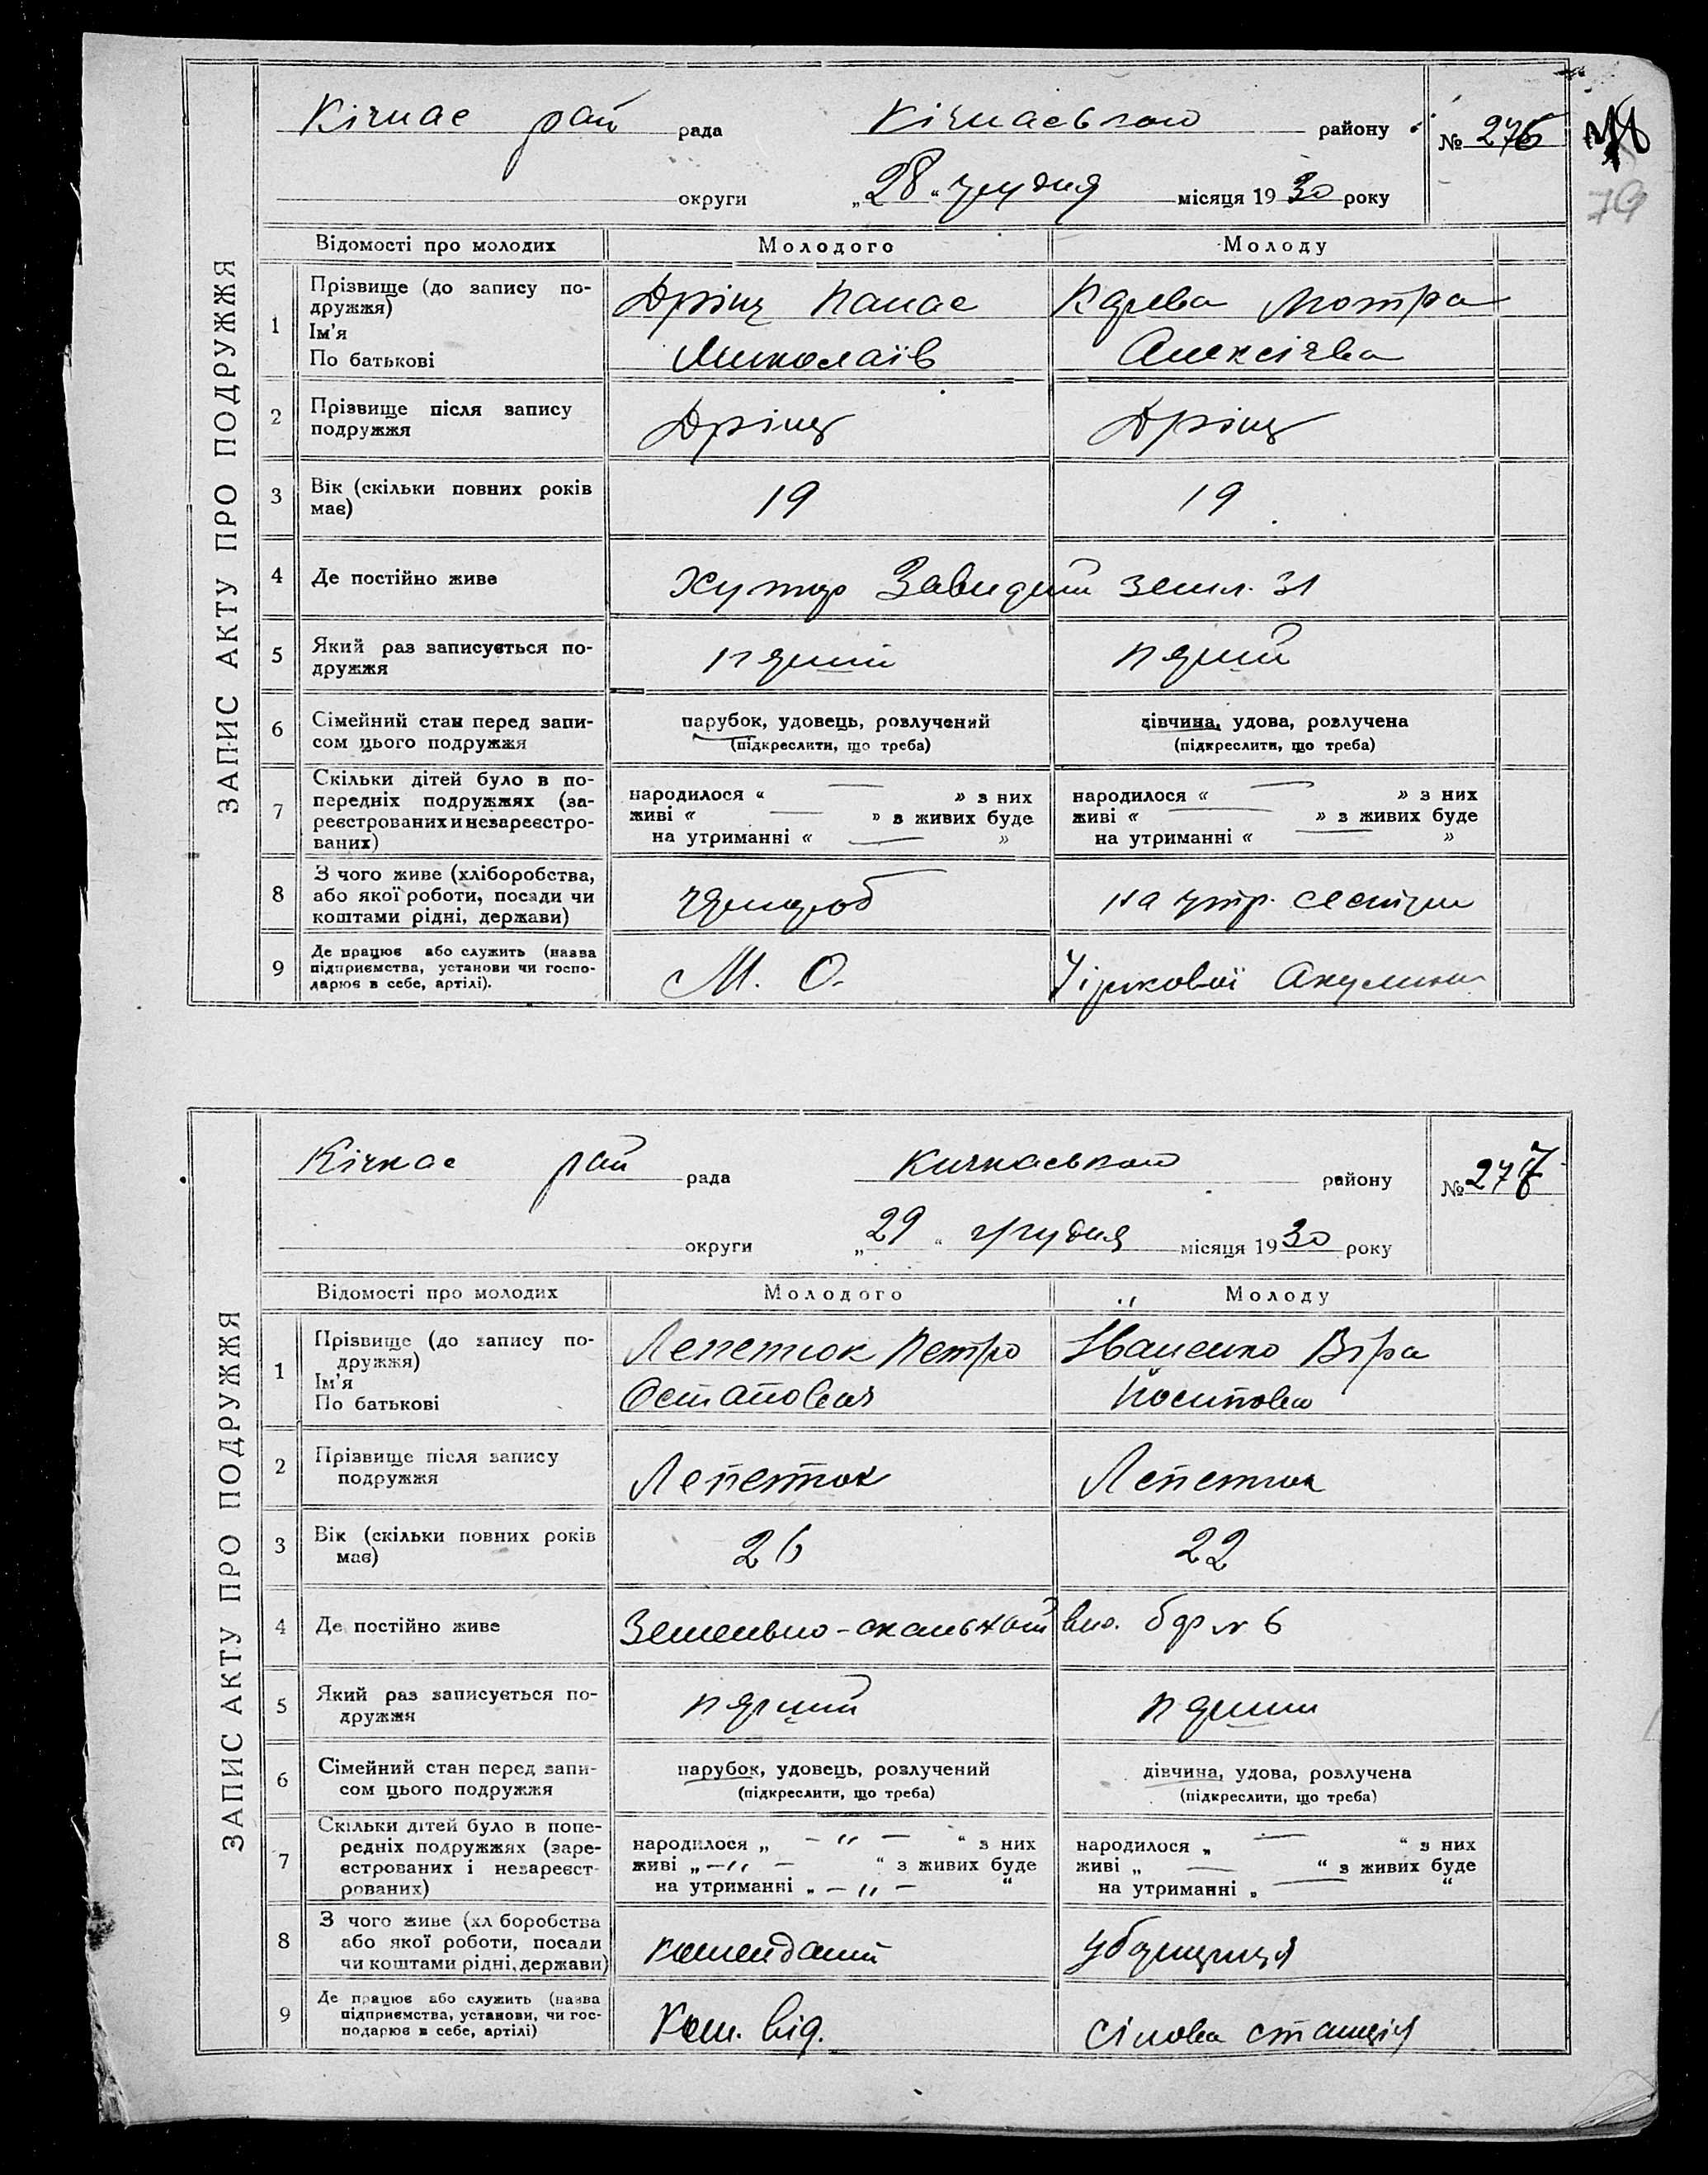 ЗАПИС АКТУ ПРО ПОДРУЖЖЯ
Кічкас рай рада Кічкаського району № 276
79
округи „28“ грудня місяця 1930 року
Відомості про молодих Молодого Молоду
1 Прізвище (до запису по-
дружжя)
Ім'я
По батькові
Дріц Панас Мотра
Миколаїв Алексієва
2 Прізвище після запису
подружжя
Дріц Дріц
3 Вік (скільки повних років
має)
19 19
4 Де постійно живе Хутор землл. 31
5 Який раз записується по-
дружжя
перший перший
6 Сімейний стан перед запи-
сом цього подружжя
парубок, удовець, розлучений
(підкреслити, що треба)
дівчина, удова, розлучена
(підкреслити, що треба)
7 Скільки дітей було в по-
передніх подружжях (за-
реєстрованих и незареєстро-
ваних)
народилося “ — ” з них
живі “ — ” з живих буде
на утриманні “ — ”
народилося “ — ” з них
живі “ — ” з живих буде
на утриманні “ — ”
8 З чого живе (хліборобства,
або якої роботи, посади чи
коштами рідні, держави)
чорнороб на утр. сестри
9 Де працює або служить (назва
підприємства, установи чи госпо-
дарює в себе, артілі).
М. О. Акулини
ЗАПИС АКТУ ПРО ПОДРУЖЖЯ
Кічкас рай рада Кичкаського району № 277
округи „29“ грудня місяця 1930 року
Відомості про молодих Молодого Молоду
1 Прізвище (до запису по-
дружжя)
Ім'я
По батькові
Лепетюк Петро Іваненко Віра
Остапович Йосипова
2 Прізвище після запису
подружжя
Лепетюк Лепетюк
3 Вік (скільки повних років
має)
26 22
4 Де постійно живе Земельно-скальний від. бар № 6
5 Який раз записується по-
дружжя
перший перший
6 Сімейний стан перед запи-
сом цього подружжя
парубок, удовець, розлучений
(підкреслити, що треба)
дівчина, удова, розлучена
(підкреслити, що треба)
7 Скільки дітей було в попе-
редніх подружжях (заре-
єстрованих і незареєст-
рованих)
народилося „ — ״ — “ з них
живі „ — ״ — “ з живих буде
на утриманні „ — ״ — “
народилося „ — “ з них
живі „ — “ з живих буде
на утриманні „ — “
8 З чого живе (хл боробства
або якої роботи, посади
чи коштами рідні, держави)
комендант уборщиця
9 Де працює або служить (назва
підприємства, установи, чи гос-
подарює в себе, артілі)
Ком. від. сілова станція